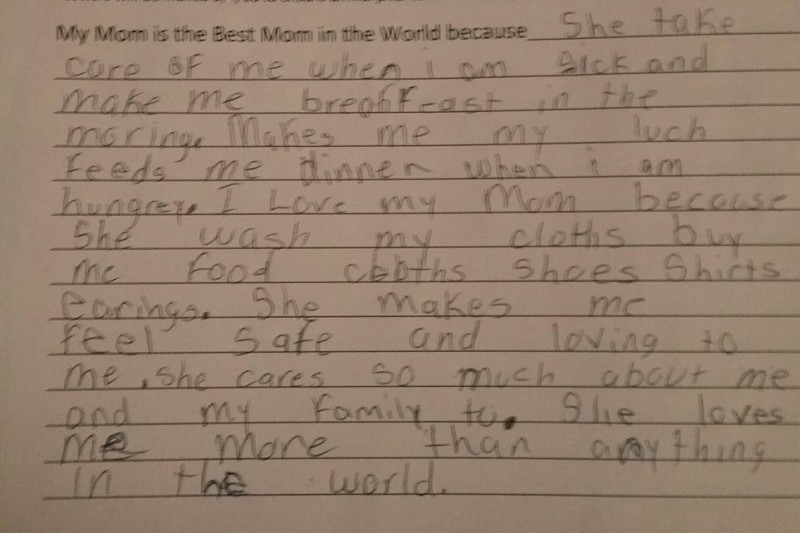 My Mom is the Best Mom in the World because She take
care of me when i am sick and
make me breahfeast in the
moring. Makes me my luch
feeds me dinner when i am
hungrey. I Love my Mom because
She wash my cloths buy
me food cloths shoes Shirts
earings. She makes me
feel safe and loving to
me, she cares so much about me
and my family to. She loves
me more than anything
in the world.